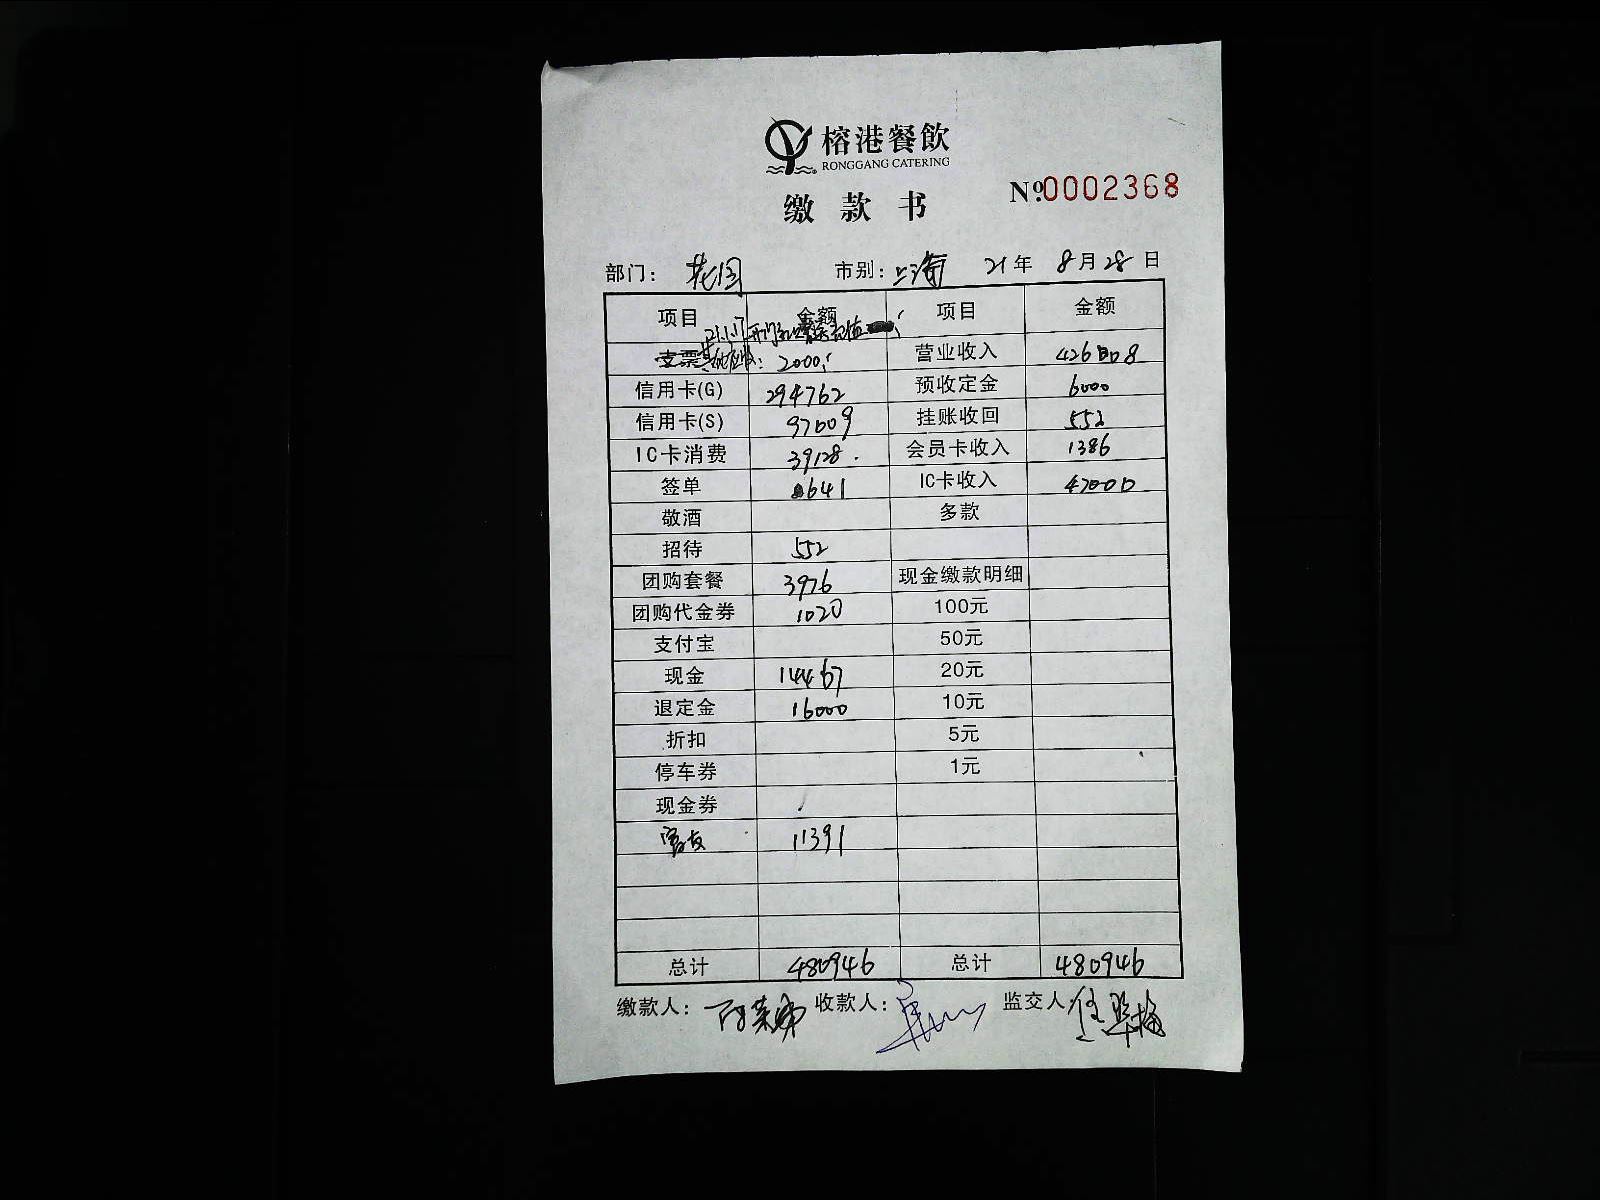 榕港餐飲
RONGGANG CATERING
缴款书
№0002368
部门： 花园 市别：上海 21年 8月28日
项目 金额 项目 金额
21.1.17开门红
支票其他应收： 2000 营业收入 426008
信用卡(G) 294762 预收定金 6000
信用卡(S) 97009 挂账收回 552
IC卡消费 39128 会员卡收入 1386
签单 641 IC卡收入 47000
敬酒 多款
招待 552
团购套餐 3976 现金缴款明细
团购代金券 1020 100元
支付宝 50元
现金 14467 20元
退定金 16000 10元
折扣 5元
停车券 1元
现金券
11391
总计 480946 总计 480946
缴款人： 收款人： 监交人：